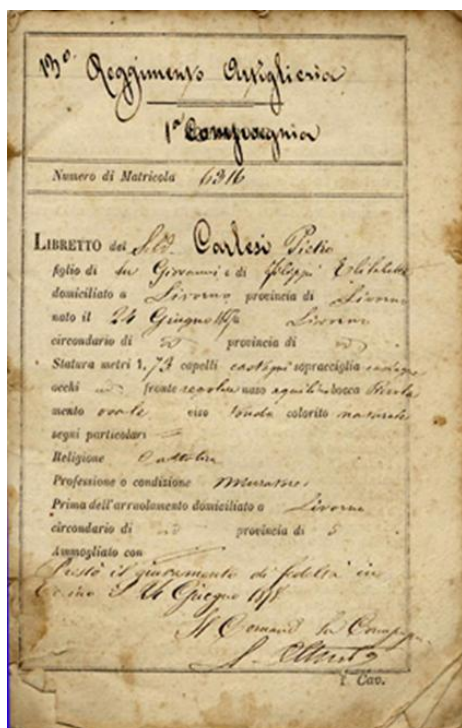 13º Reggimento Artiglieria
1ª Compagnia
Numero di Matricola 6316
LIBRETTO del Sold. Carlesi Pietro
figlio di fu Giovanni e di Filippi
domiciliato a Livorno provincia di Livorno
nato il 24 Giugno Livorno
circondario di id provincia di id
Statura metri 1,73 capelli castagni sopracciglia castagne
occhi id fronte regolare naso aquilino bocca piccola
mento ovale viso tondo colorito naturale
segni particolari
Religione Cattolica
Professione o condizione Muratore
Prima dell'arruolamento domiciliato a Livorno
circondario di id provincia di
Ammogliato con
Prestò il giuramento di fedeltà in
Torino il 24 Giugno
Il Comand. la Compag.
Y Cav.